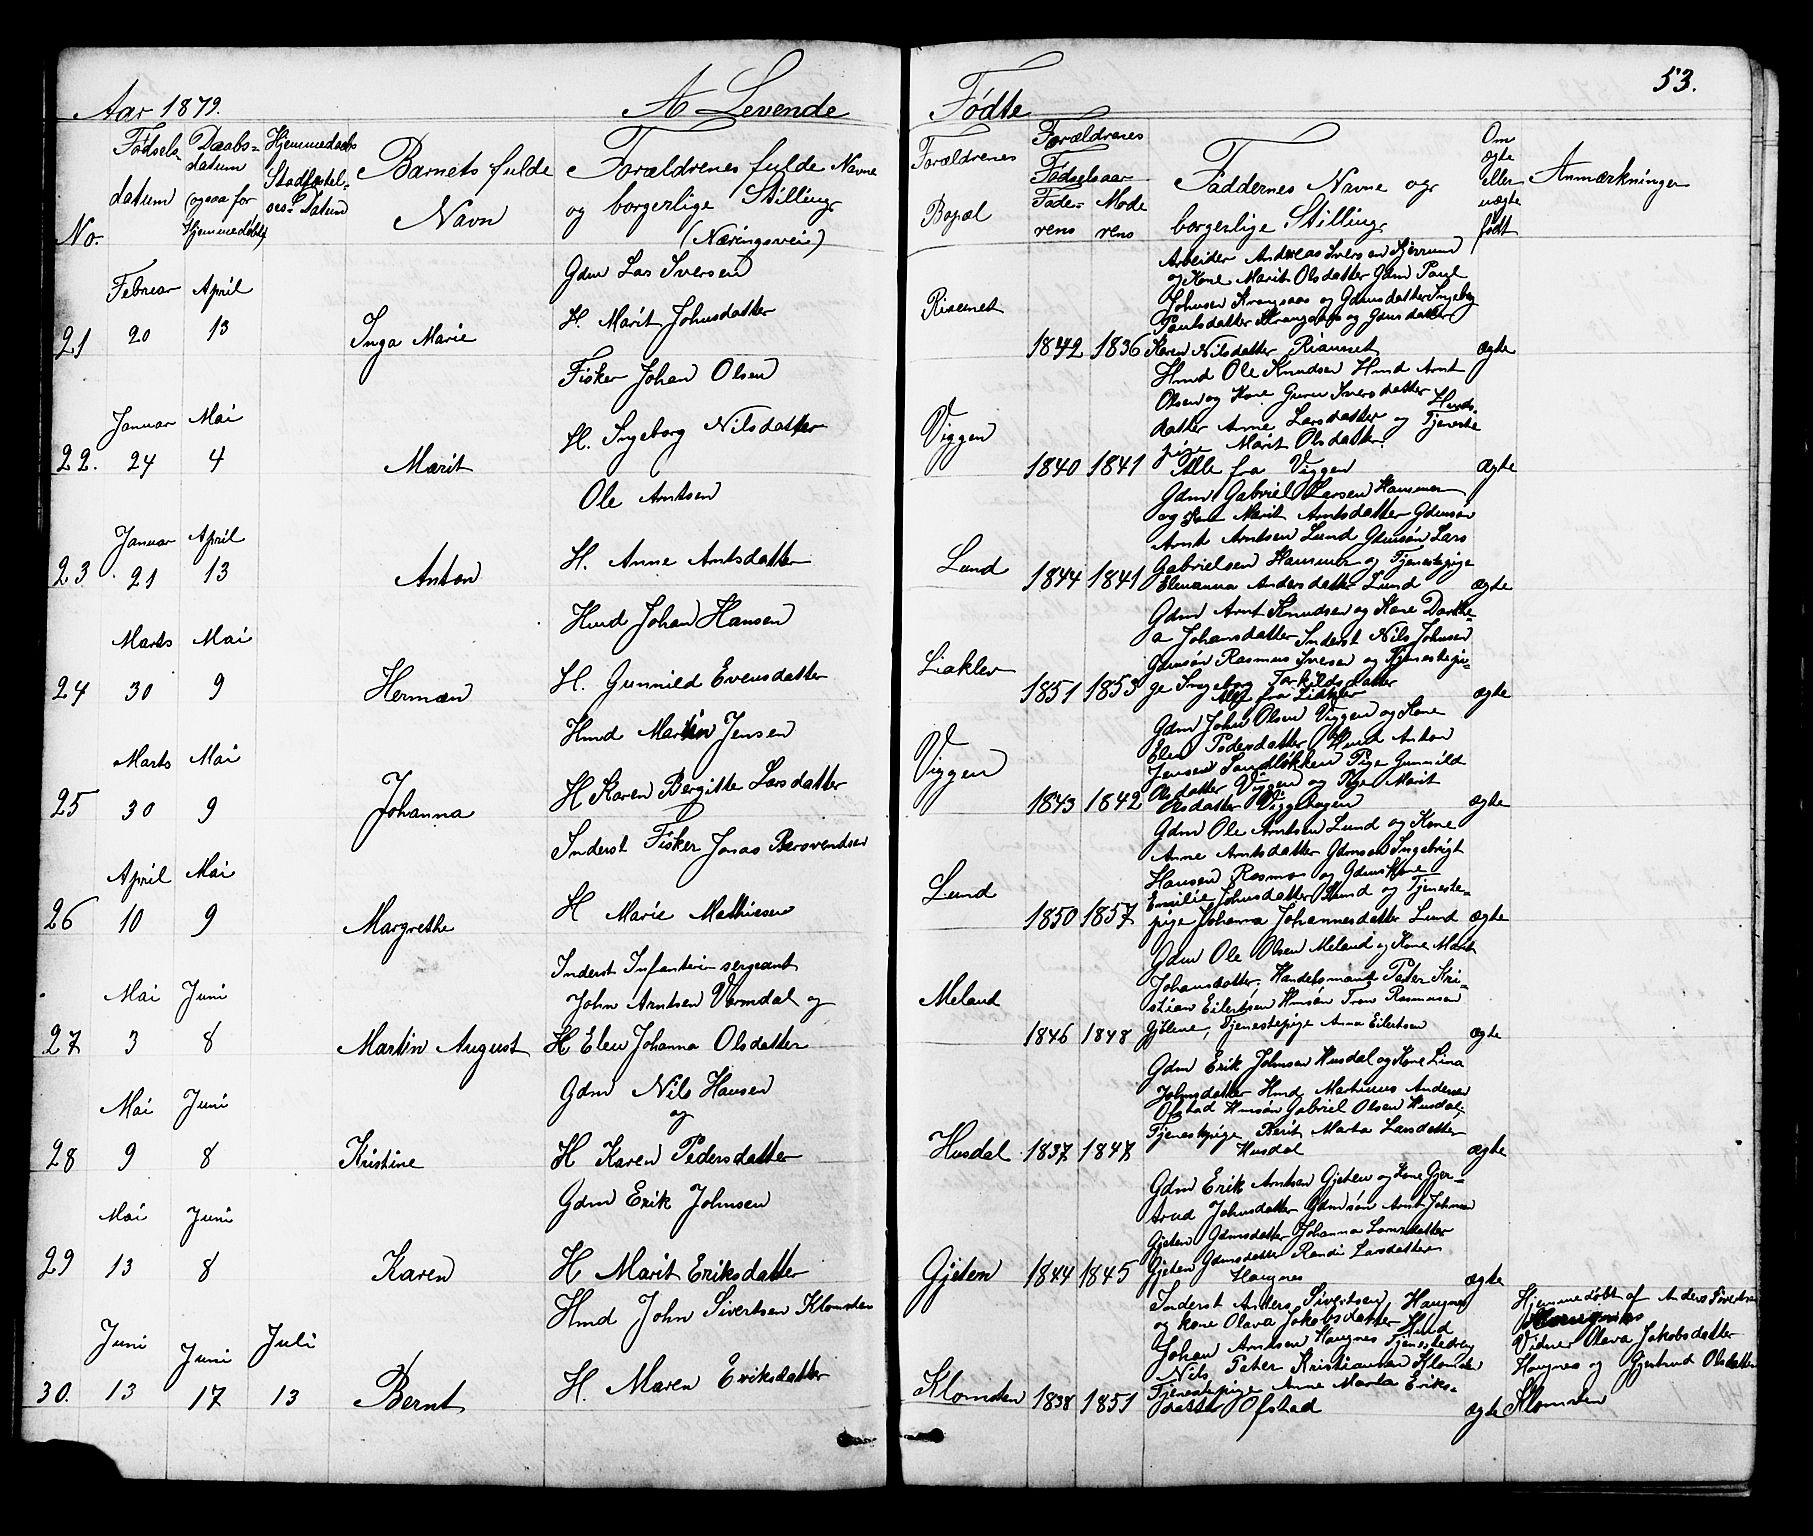 Aar 1879.
A Levende
Fødte
53.
No.
Fødsels-
datum
Daabs-
datum
(ogsaa for
Hjemmedøbte)
Hjemmedaabs
Stadfæstel-
ses-Datum
Barnets fulde
Navn
Forældrenes fulde Navne
og borgerlige Stilling
(Næringsvei)
Forældrenes
Bopæl
Forældrenes
Fødselsaar
Fade- Mode
rens rens
Faddernes Navne og
borgerlige Stilling
Om
ægte
eller
uægte
født
Anmærkninger
Februar April
21 20 13
Inga Marie
Gdm Lars Iversen
H. Marit Johnsdatter
1842 1836
Arbeider Andreas Iversen
og Kone Marit Olsdatter Gdm Paul
Johnsen Krangsaas og Gdmsdatter Ingebog
Paulsdatter Krangsaas og Gdmsdatter
Karen Nilsdatter
ægte
Januar Mai
22. 24 4
Marit
Fisker Johan Olsen
H. Ingeborg Nilsdatter
Viggen
1840 1841
Hmd Ole Knudsen Hmd Arnt
Olsen og Kone Guru Iversdatter Hmds-
datter Anne Larsdatter og Tjeneste
pige Marit Olsdatter.
Alle fra Viggen
ægte
Januar April
23. 21 13
Anton
Ole Arntsen
H. Anne Arntsdatter
Lund
1844 1841
Gdm Gabriel Larsen Hammer
og Kone Marit Arntsdatter Gdmsøn
Arnt Arntsen Lund Gdmsøn Lars
Gabrielsen Hammer og Tjenestepige
Elenanna Andersdatter Lund
ægte
Marts Mai
24 30 9
Herman
Hmd Johan Hansen
H. Gunnild Evensdatter
Liaklev
1851 1855
Gdm Arnt Knudsen og Kone Dorthe-
a Johansdatter Inderst Nils Johnsen
Gdmsøn Rasmus Iversen og Tjenestepi-
ge Ingebog Torkildsdatter
Alle fra Liaklev
ægte
Marts Mai
25 30 9
Johanna
Hmd Martin Jensen
H Karen Bergitte Larsdatter
Viggen
1843 1842
Gdm John Olsen Viggen og Kone
Elen Pedersdatter Hmd Anton
Jensen Sandløkken Pige Gunnild
Olsdatter Viggen og Pige Marit
Olsdatter Viggebogen
ægte
April Mai
26 10 9
Margrethe
Inderst Fisker Jonas Bersvendsen
H Marie Mathiesen
Lund
1850 1857
Gdm Ole Arntsen Lund og Kone
Anne Arntsdatter Gdmsøn Ingebrigt
Hansen Rosmo og Gdmskone
Emilie Johnsdatter Lund og Tjeneste-
pige Johanna Johannesdatter Lund
ægte
Mai Juni
27 3 8
Martin August
Inderst Infanteri-sergeant
John ArntsenVærndal og
H Elen Johanna Olsdatter
Meland
1846 1848
Gdm Ole Olsen Meland og Kone Marit
Johansdatter. Handelsmand Peter Kri-
stian Eilertsen Hmsøn Tron Rasmussen
Gjølene, Tjenestepige Anna Eilertsen
ægte
Mai Juni
28 9 8
Kristine
Gdm Nils Hansen
og
H Karen Pedersdatter
Husdal
1837 1847
Gdm Erik Johnsen Husdal og Kone Lina
Johnsdatter Hmd Martinus Andersen
Ofstad Hmsøn Gabriel Olsen Husdal
Tjenestepige Berit Marta Larsdatter
Husdal
ægte
Mai Juni
29 13 8
Karen
Gdm Erik Johnsen
H Marit Eriksdatter
Gjeten
1844 1845
Gdm Erik Arntsen Gjeten og Kone Gjer-
trud Johnsdatter Gdmsøn Arnt Johnsen
Gjeten Gdmsdatter Johanna Larsdatter
Gjeten Gdmsdatter Randi Larsdatter
Haugnes
ægte
Juni Juni Juli
30. 13 17 13
Bernt
Hmd John Sivertsen Klomsten
H. Maren Eriksdatter
Klomsten
1838 1851
Inderst Anders Sivertsen Haugnes
og Kone Olava Jakobsdatter Hmd
Johan Arntsen Haugnes Tjenestedreng
Nils Peter Kristiansen Klomsten
Tjenestepige Anne Marta Eriks-
datter Ofstad
ægte
Hjemmedøbt af Anders Sivertsen
Haugnes
Vidner Olava Jakobsdatter
Haugnes og Gjertrud Olsdatter
Klomsten